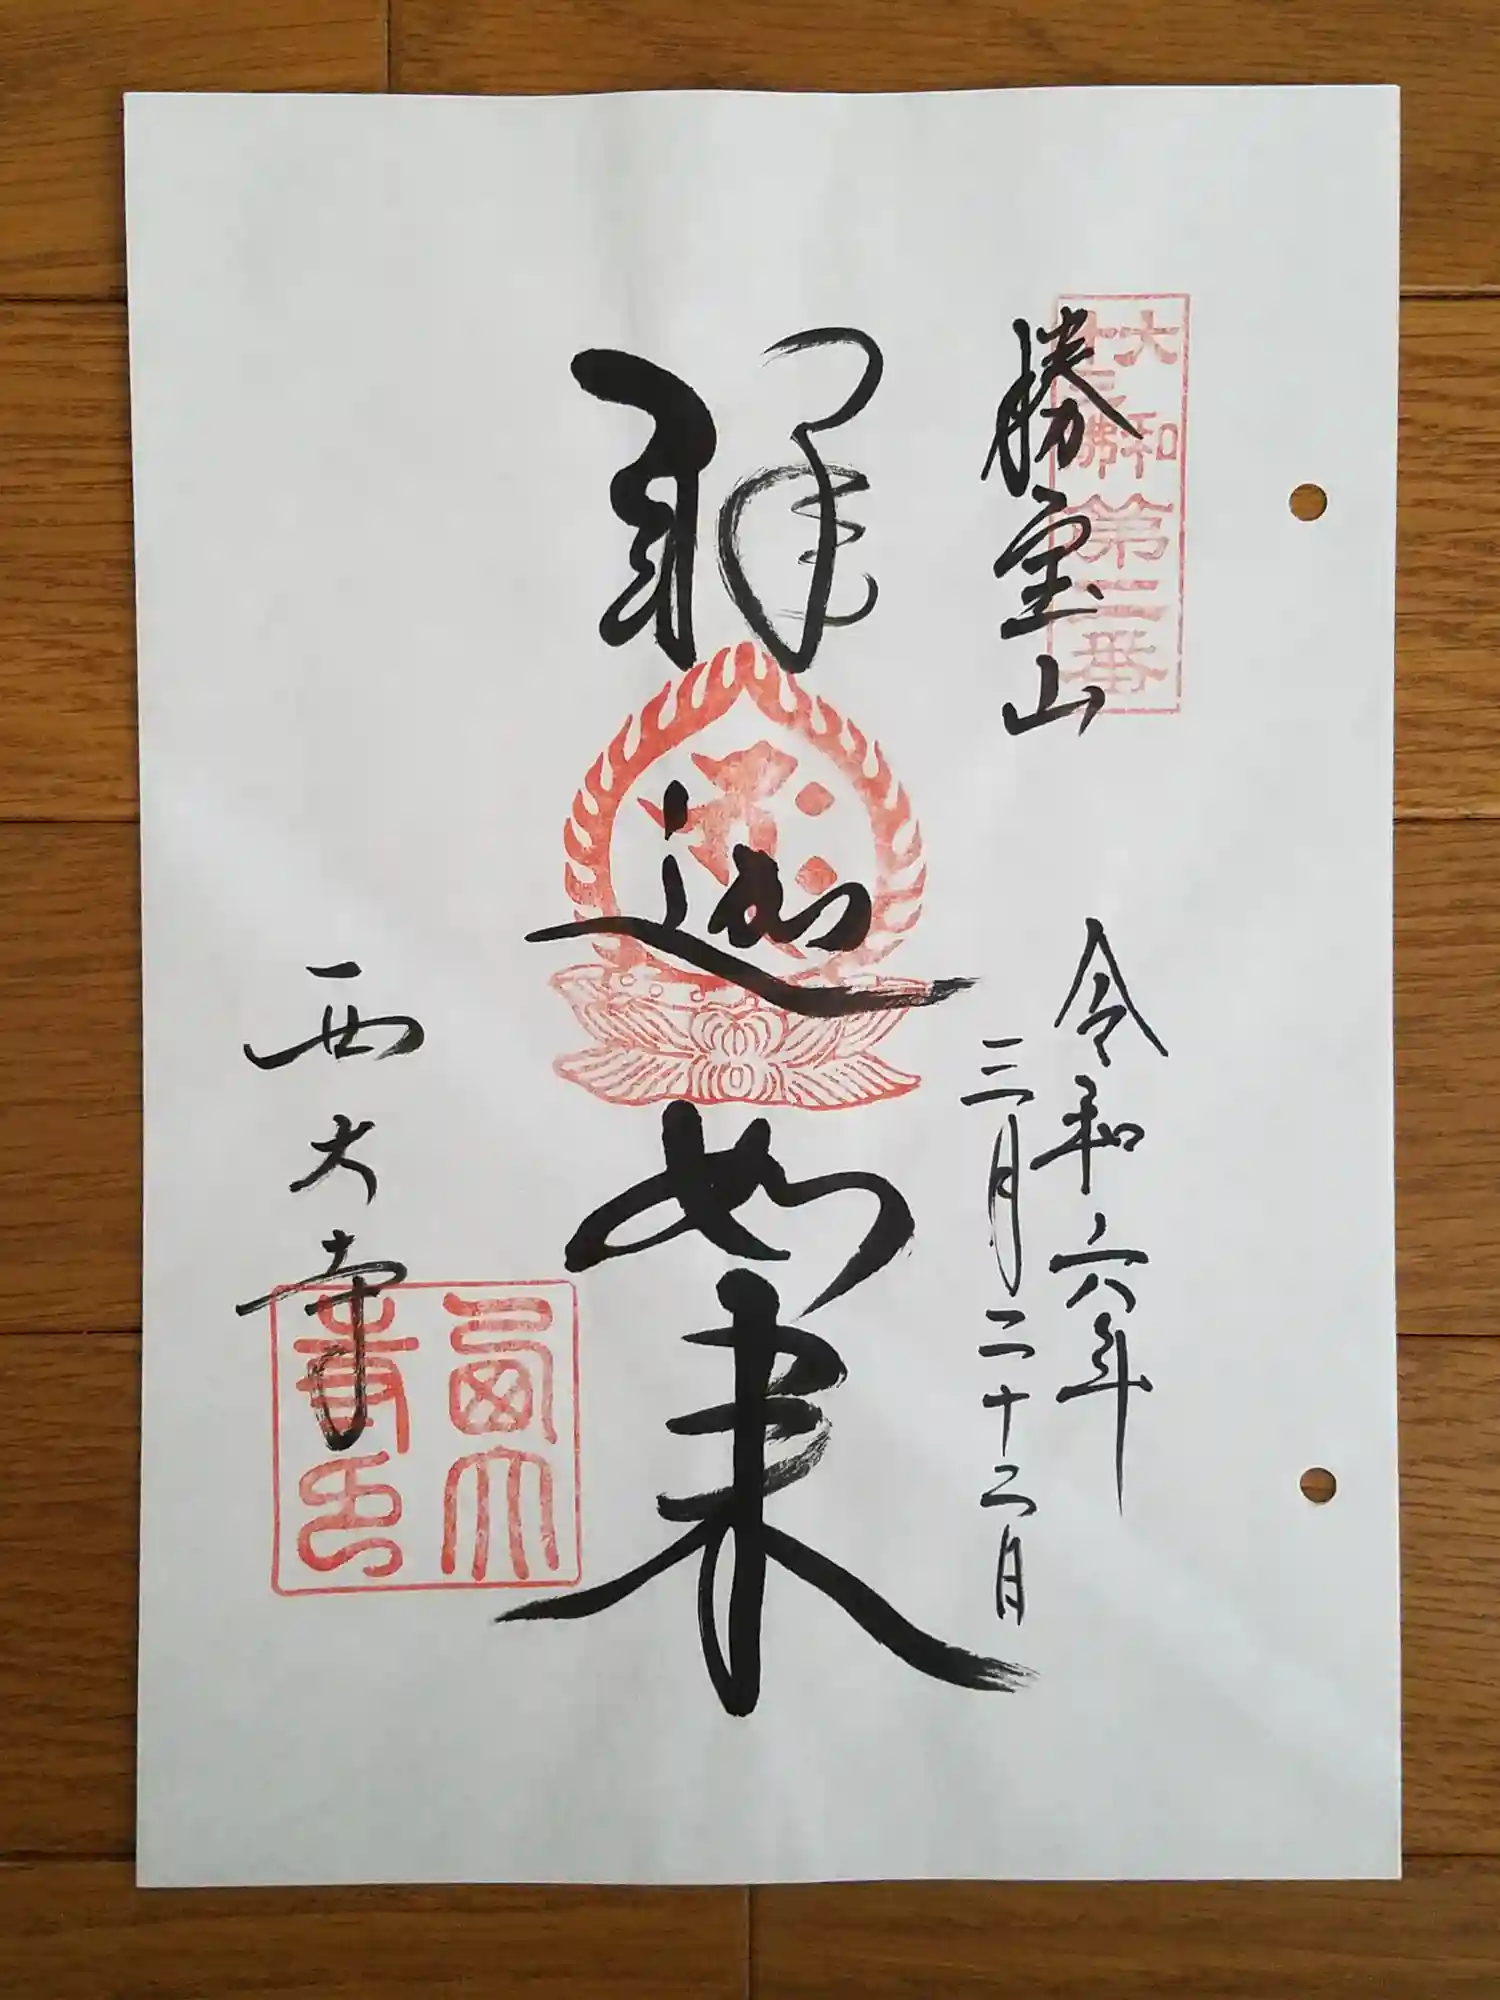 大和
十三佛
第二番
勝宝山
令和六年
三月二十二日
釋迦如来
西大寺
西大
寺印